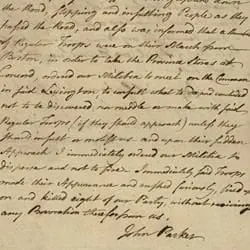 the Road, stopping and insulting People as they
passed the Road, and also was informed that a Number
of Regular Troops were on their March from
Boston, in order to take the Province Stores at
Concord, ordered our Militia to meet on the Common
in said Lexington, to consult what to do, and concluded
not to be discovered, nor meddle or make with said
Regular Troops (if they should approach) unless they
should insult or molest us – and upon their sudden
Approach I immediately ordered our Militia to
disperse and not to fire – Immediately said Troops
made their Appearance and rushed furiously, fired up
on and killed eight of our Party, without receiving
any Provocation therefor from us.
John Parker